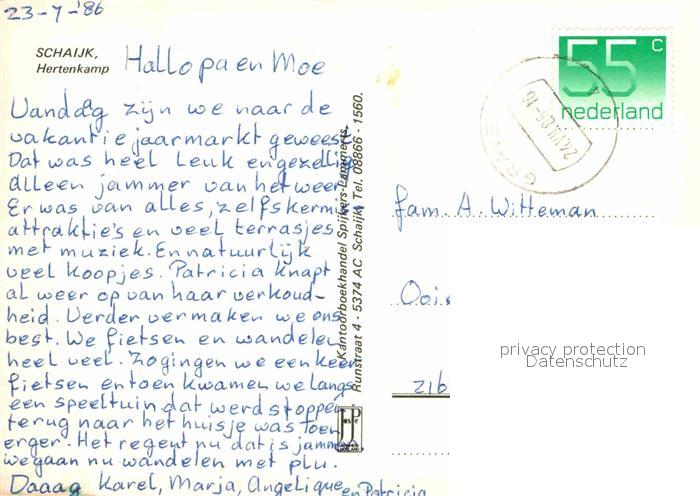 23-7-'86
SCHAIJK,
Hertenkamp
Hallo pa en Moe
Vandaag zijn we naar de
vakantie jaarmarkt geweest.
Dat was heel Leuk en gezellig
alleen jammer van het weer
Er was van alles, zelfs kermis
attraktie's en veel terrasjes
met muziek. En natuurlijk
veel koopjes. Patricia knapt
al weer op van haar verkoud-
heid. Verder vermaken we ons
best. We fietsen en wandelen
heel veel. Zo gingen we een keer
fietsen en toen kwamen we langs
een speeltuin dat werd stoppen
terug naar het huisje was toen
erger. Het regent nu dat is jammer
we gaan nu wandelen met plu.
Daaag Karel, Marja, Angelique en Patricia
Kantoorboekhandel Spijkers-Lammerts,
Runstraat 4 - 5374 AC Schaijk, Tel. 08866 - 1560.
55 c
nederland
GRAVE
24.VII.86-16
fam. A. Witteman
Ois
privacy protection
Datenschutz